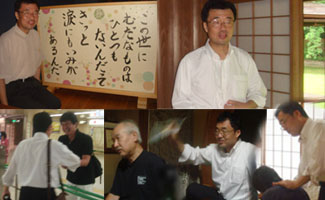 この世に
むだなものは
ひとつも
ないんだぞ
きっと
涙にもいみが
あるんだ